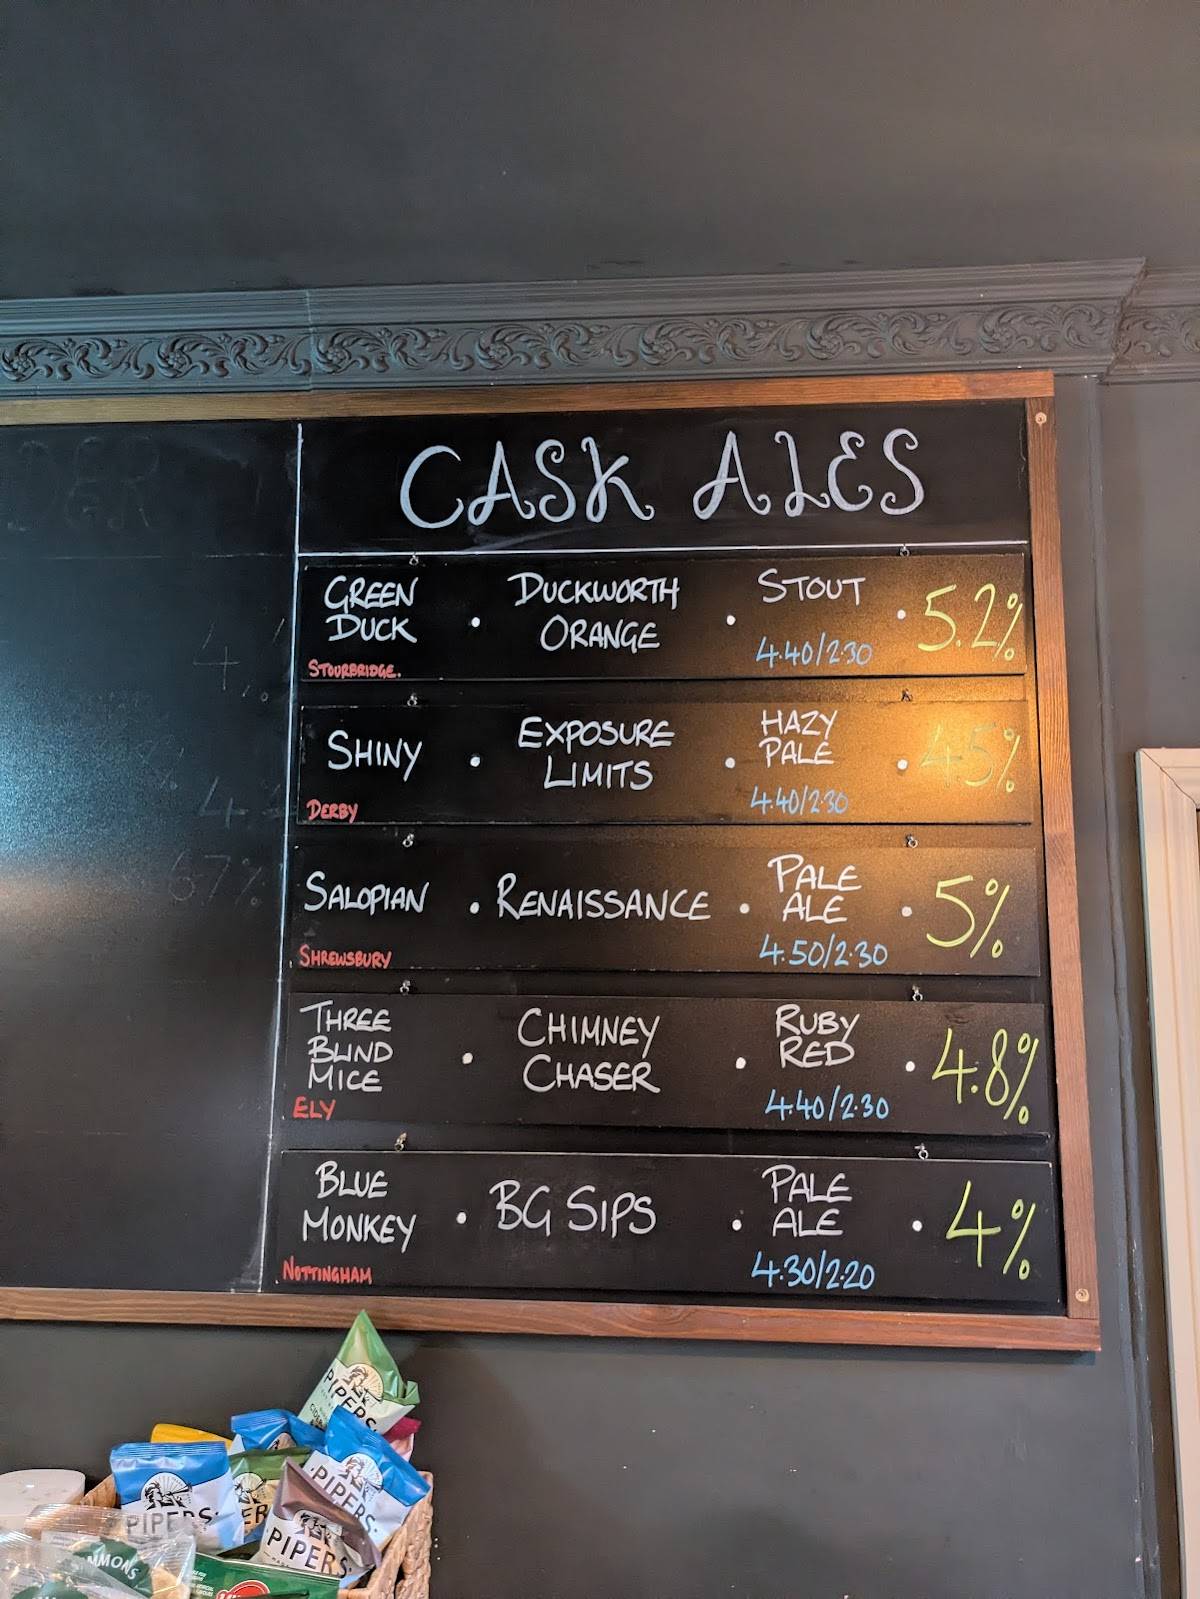 CASK ALES
GREEN
DUCK
STOURBRIDGE.
DUCKWORTH
ORANGE
STOUT
4.40/2.30
5.2%
SHINY
DERBY
EXPOSURE
LIMITS
HAZY
PALE
4.40/2.30
4.5%
SALOPIAN
SHREWSBURY
RENAISSANCE
PALE
ALE
4.50/2.30
5%
THREE
BLIND
MICE
ELY
CHIMNEY
CHASER
RUBY
RED
4.40/2.30
4.8%
BLUE
MONKEY
NOTTINGHAM
BG SIPS
PALE
ALE
4.30/2.20
4%
PIPERS
PIPERS
PIPERS
PIPERS